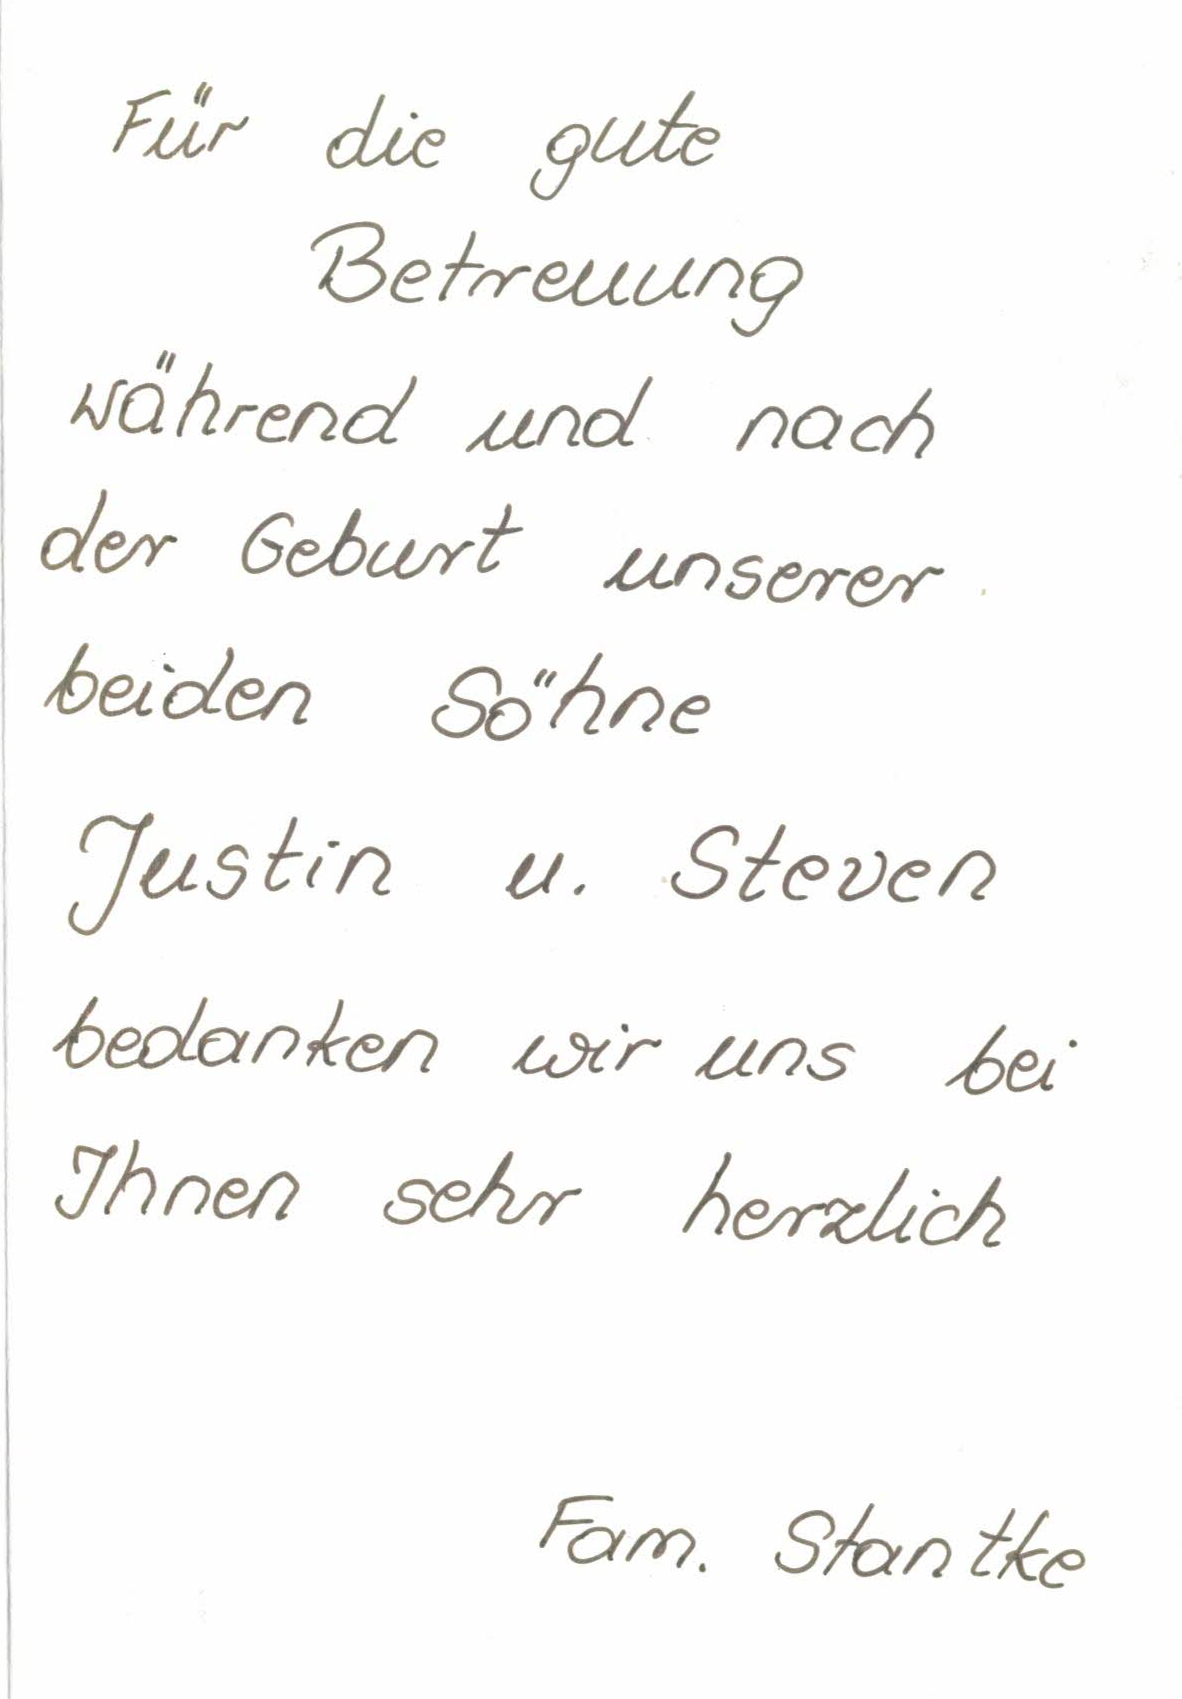 Für die gute
Betreuung
während und nach
der Geburt unserer
beiden Söhne
Justin u. Steven
bedanken wir uns bei
Ihnen sehr herzlich
Fam. Stantke